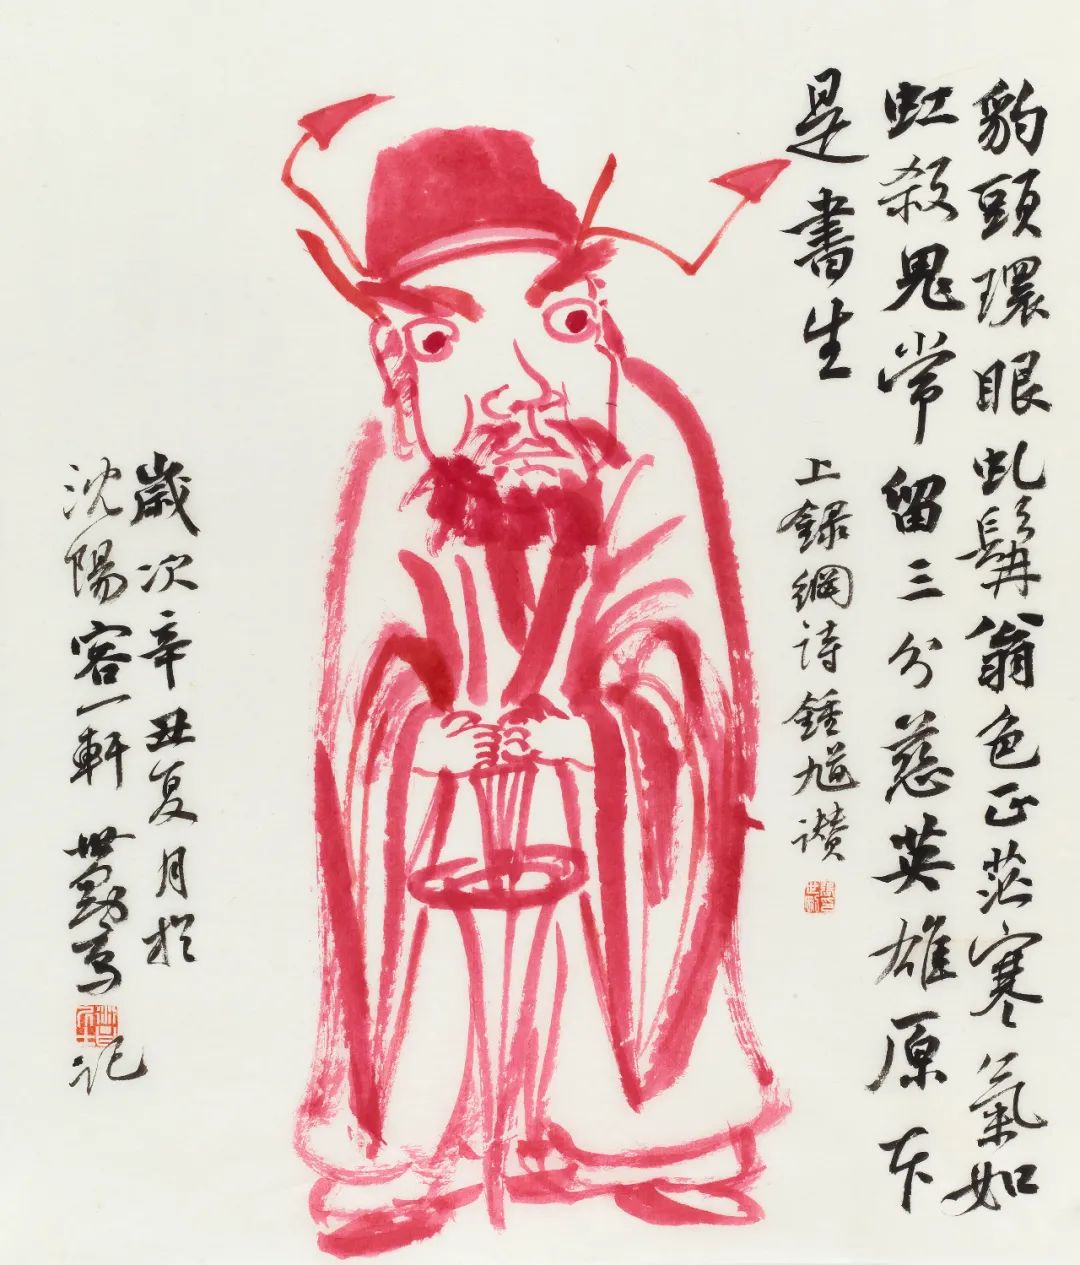 豹頭環眼虬髯翁色正茫寒氣如
虹殺鬼常留三分慈英雄原本
是書生
上錄網詩鍾馗讚
歲次辛丑夏月於
沈陽容一軒世勳寫記